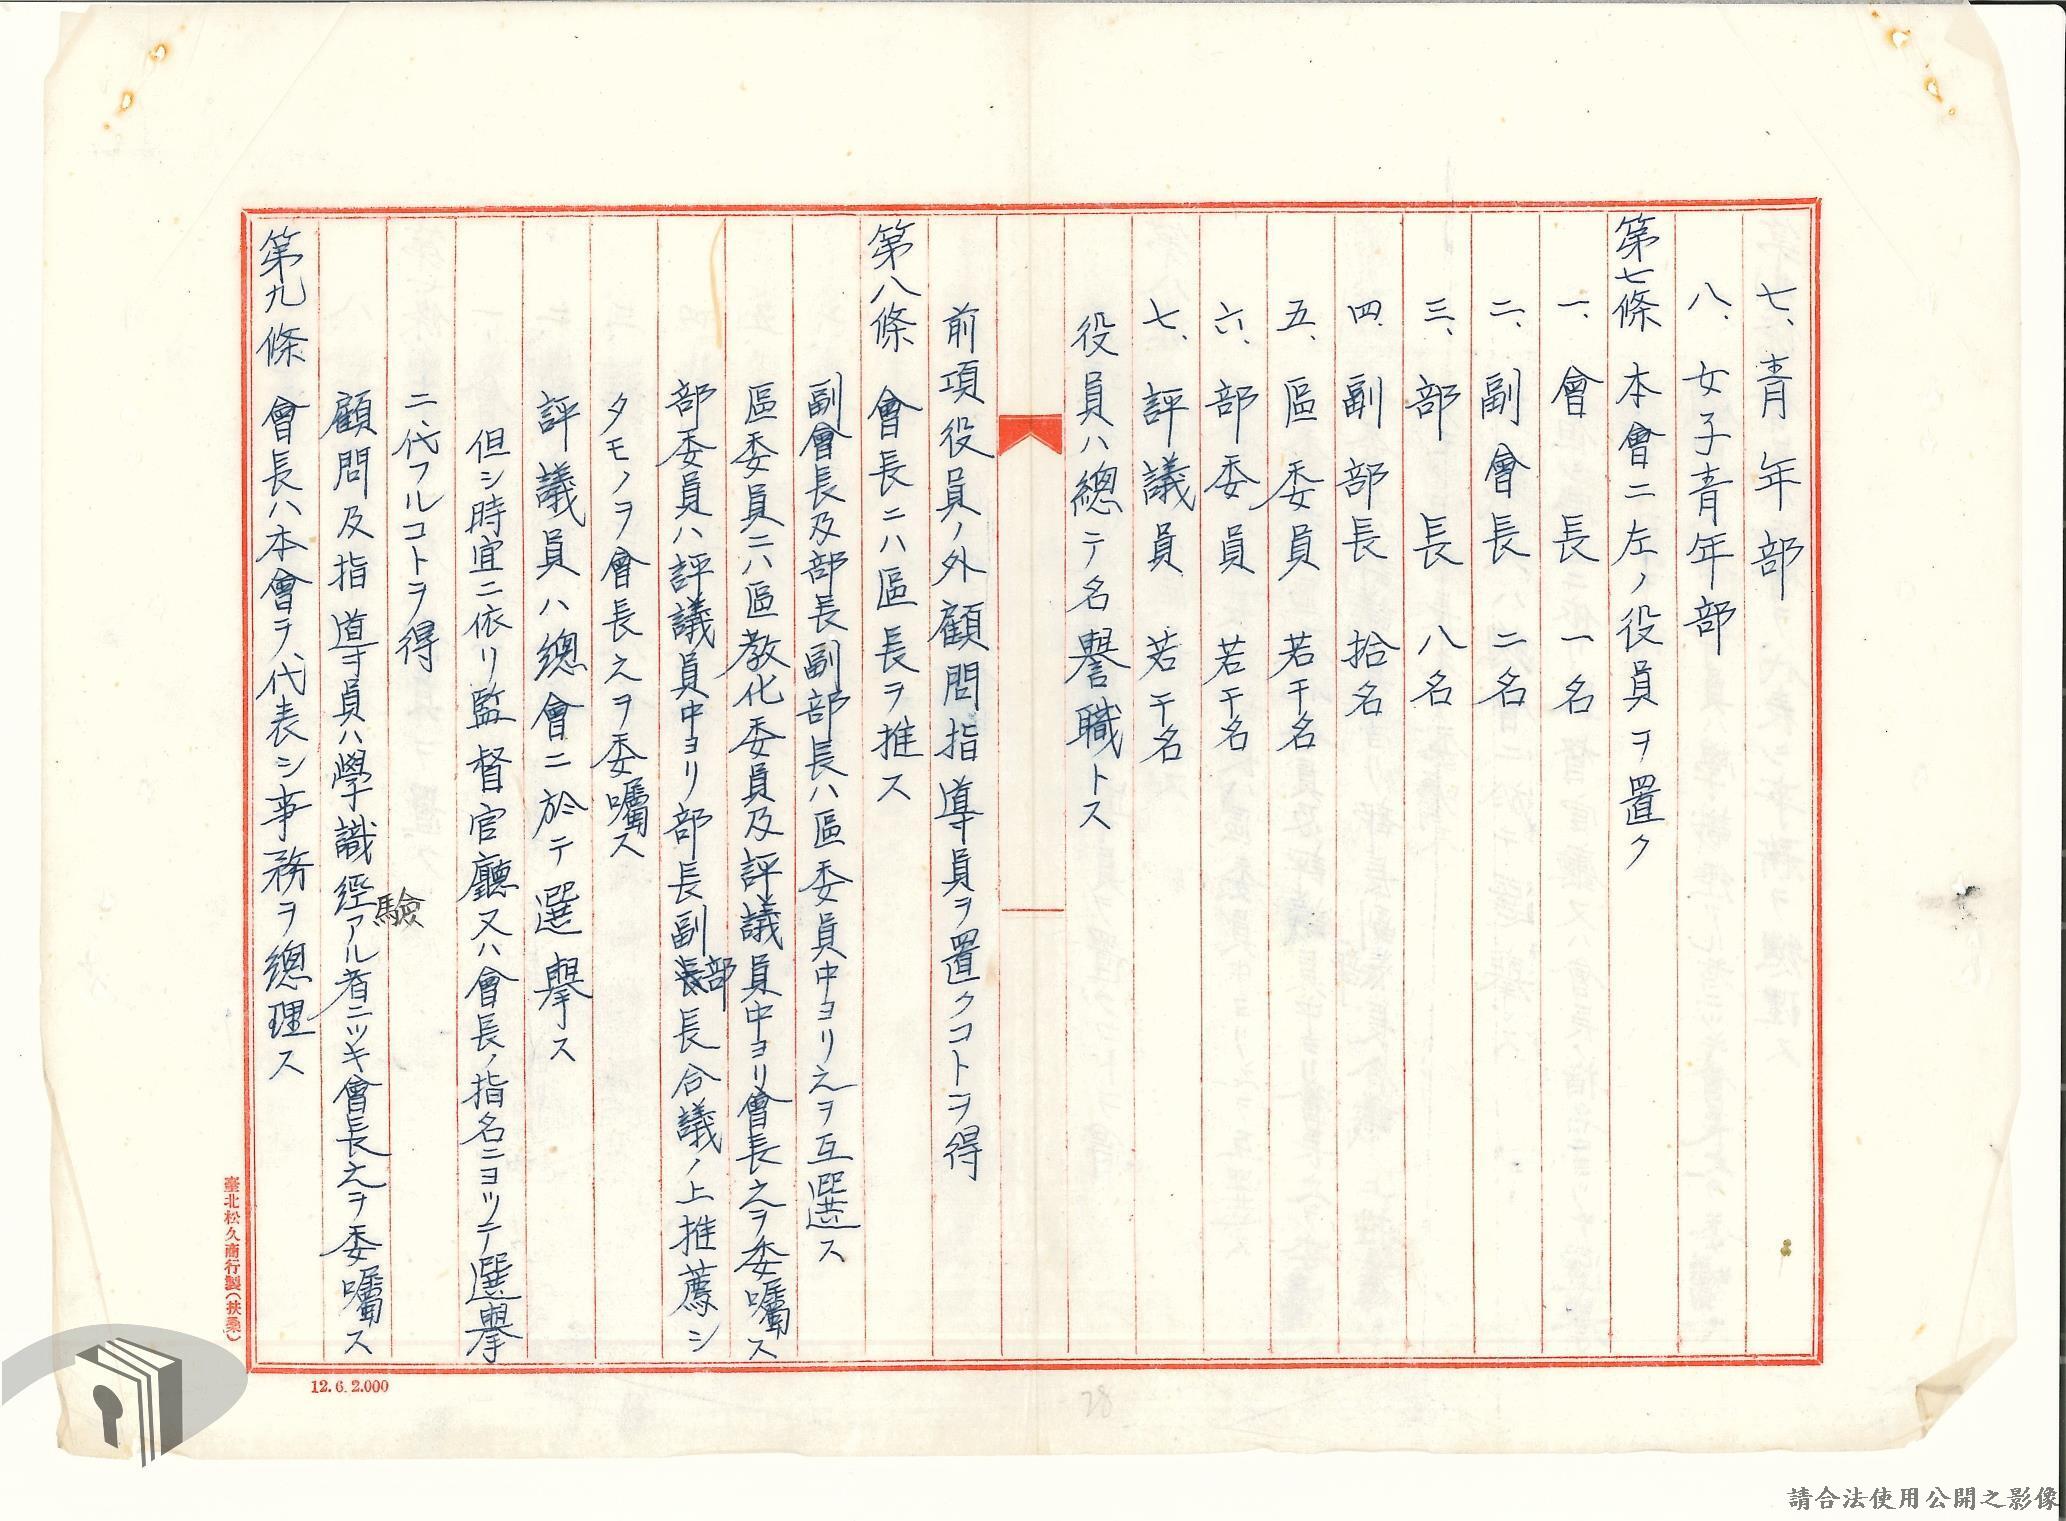 七、青年部
八、女子青年部
第七條 本會ニ左ノ役員ヲ置ク
一、會長 一名
二、副會長 二名
三、部長 八名
四、副部長 拾名
五、區委員 若干名
六、部委員 若干名
七、評議員 若干名
役員ハ總テ名譽職トス
前項役員ノ外顧問指導員ヲ置クコトヲ得
第八條 會長ニハ區長ヲ推ス
副會長及部長副部長ハ區委員中ヨリ之ヲ互選ス
區委員ニハ區教化委員及評議員中ヨリ會長之ヲ委囑ス
部委員ハ評議員中ヨリ部長副部長合議ノ上推薦シ
タモノヲ會長之ヲ委囑ス
評議員ハ總會ニ於テ選擧ス
但シ時宜ニ依リ監督官廳又ハ會長ノ指名ニヨツテ選擧
ニ代フルコトヲ得
顧問及指導員ハ學識經驗アル者ニツキ會長之ヲ委囑ス
第九條 會長ハ本會ヲ代表シ事務ヲ總理ス
臺北松久商行製(扶桑)
12.6.2.000
28
請合法使用公開之影像